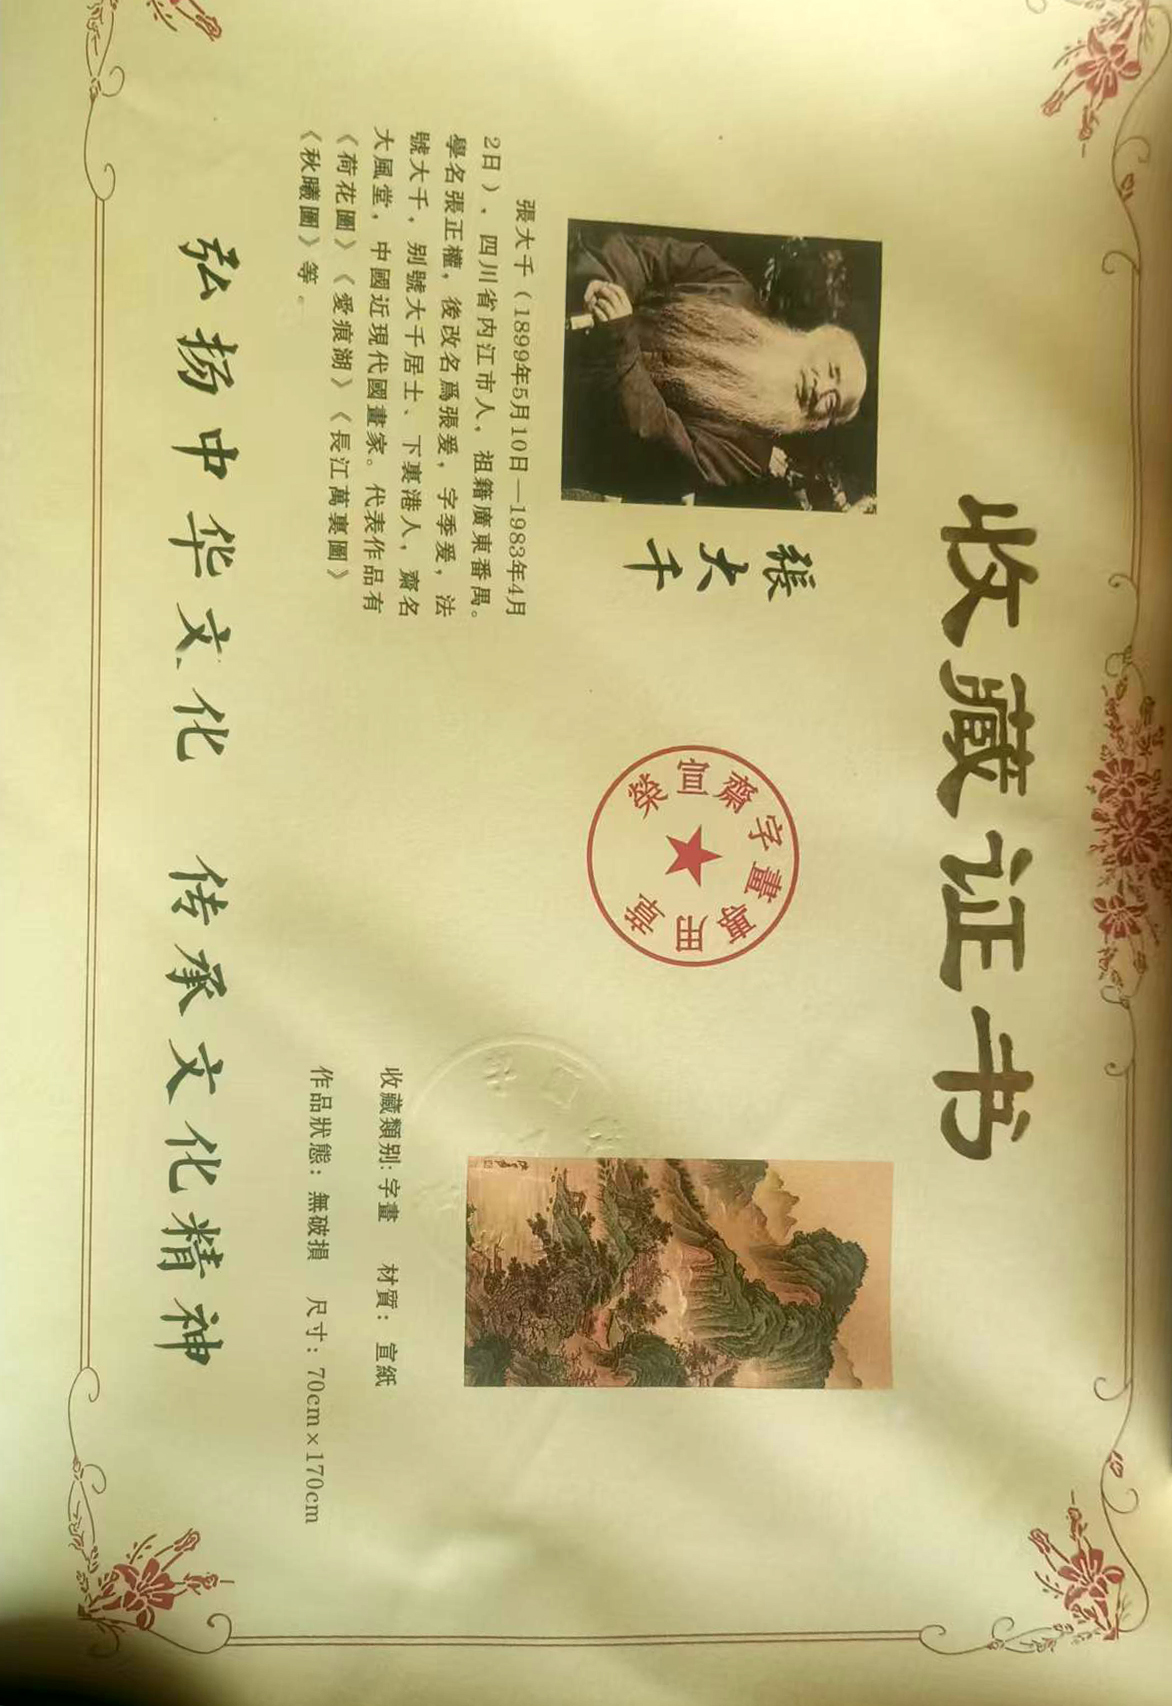 收藏证书
張大千
張大千（1899年5月10日—1983年4月
2日），四川省内江市人，祖籍廣東番禺。
學名張正權，後改名爲張爰，字季爰，法
號大千，别號大千居士、下裏港人，齋名
大風堂，中國近現代國畫家。代表作品有
《荷花圖》《愛痕湖》《長江萬裏圖》
《秋曦圖》等。
榮宣齋字畫專用章
收藏類别：字畫 材質：宣紙
作品狀態：無破損 尺寸：70cm×170cm
弘扬中华文化 传承文化精神